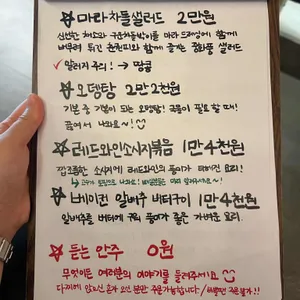 ☆ 마라차돌샐러드 2만원
신선한 채소와 구운차돌박이를 마라 드레싱에 함께
버무려 튀긴 춘권피와 함께 즐기는 중화풍 샐러드
✓ 알러지 주의! → 땅콩
☆ 오뎅탕 2만 2천원
기본 중 기본이 되는 오뎅탕! 국물이 필요할 때!
끓여서 나와요~!
☆ 레드와인소시지볶음 1만 4천원
짭조름한 소시지에 레드와인의 풍미가 더해진 요리!
☆ 베이컨 알배추 버터구이 1만 4천원
알배추를 버터에 구워 풍미가 좋은 가벼운 요리.
☆ 듣는 안주 0원
무엇이든 여러분의 이야기를 들려주세요
다찌에 앉으신 혼자 오신 분만 주문가능합니다!